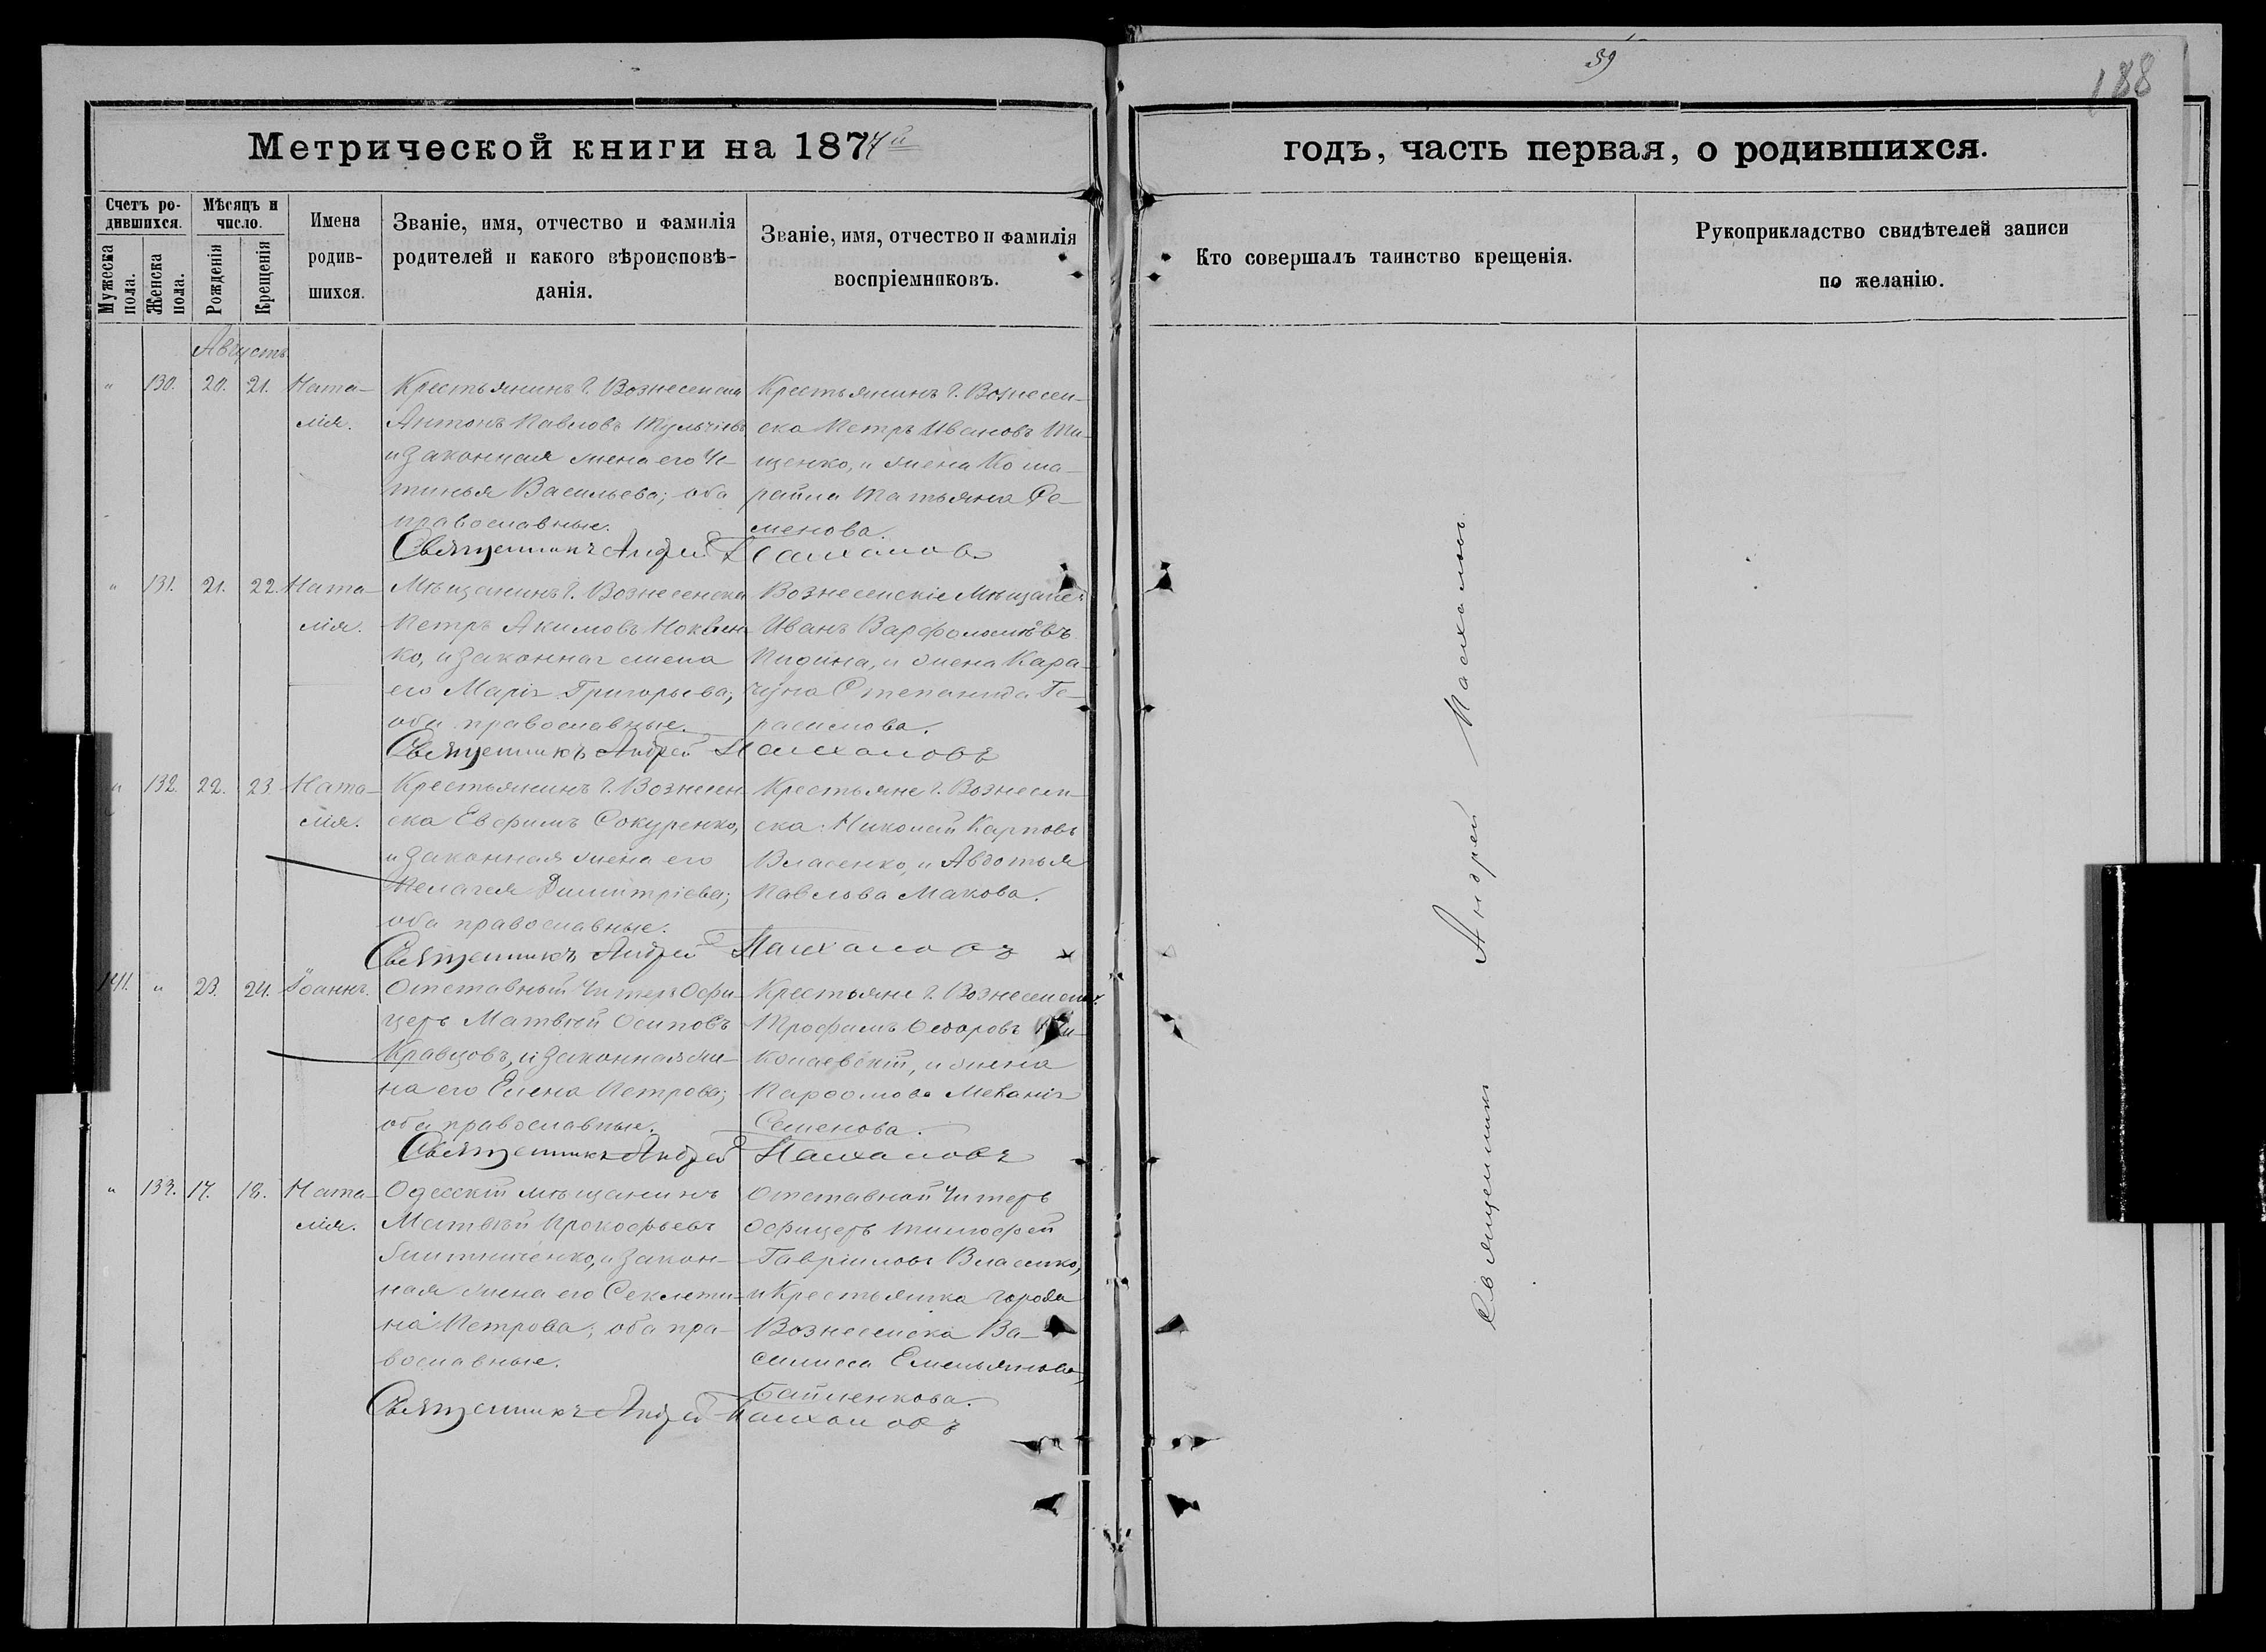 39
188
Метрической книги на 1874й
годъ, часть первая, о родившихся.
Счетъ родившихся.
Мужеска пола.
Женска пола.
Мѣсяцъ и число.
Рожденія
Крещенія
Имена родившихся.
Званіе, имя, отчество и фамилія родителей и какого вѣроисповѣданія.
Званіе, имя, отчество и фамилія воспріемниковъ.
Кто совершалъ таинство крещенія.
Рукоприкладство свидѣтелей записи по желанію.
Августъ
" 130. 20. 21. Ната-
лія.
Крестьянинъ г. Вознесенска
Антонъ Павловъ
и законная жена его Ус-
тинья Васильева; оба
православные.
Крестьянинъ г. Вознесен-
ска Петръ Ивановъ Ти-
щенко, и жена
Татьяна Се-
менова.
Священникъ Андрей
" 131. 21. 22. Ната-
лія.
Мѣщанинъ г. Вознесенска
Петръ Акимовъ
ко, и законная жена
его Марія Григорьева;
оба православные.
Вознесенскіе Мѣщане:
Иванъ Варфоломѣевъ
и жена Кара-
чуна Степанида Ге-
расимова.
Священникъ Андрей
" 132. 22. 23. Ната-
лія.
Крестьянинъ г. Вознесен-
ска Евфимъ Сокуренко,
и законная жена его
Пелагея Димитріева;
оба православные.
Крестьяне г. Вознесен-
ска: Николай Карповъ
Власенко, и Авдотья
Павлова Макова.
Священникъ Андрей
141. " 23. 24. Іоаннъ.
Отставный Унтеръ Офи-
церъ Матвѣй Осиповъ
Кравцовъ, и законная же-
на его Елена Петрова;
оба православные.
Крестьяне г. Вознесенска:
Трофимъ Ѳедоровъ Ни-
колаевскій, и жена
Меланія
Семенова.
Священникъ Андрей
" 133. 17. 18. Ната-
лія.
Одесскій мѣщанинъ
Матвѣй Прокофьевъ
и закон-
ная жена его Секлети-
нія Петрова; оба пра-
вославные.
Отставной Унтеръ
Офицеръ Тимофей
Гавріиловъ Власенко,
и Крестьянка города
Вознесенска Ва-
силисса Емельянова
Священникъ Андрей
Священникъ Андрей